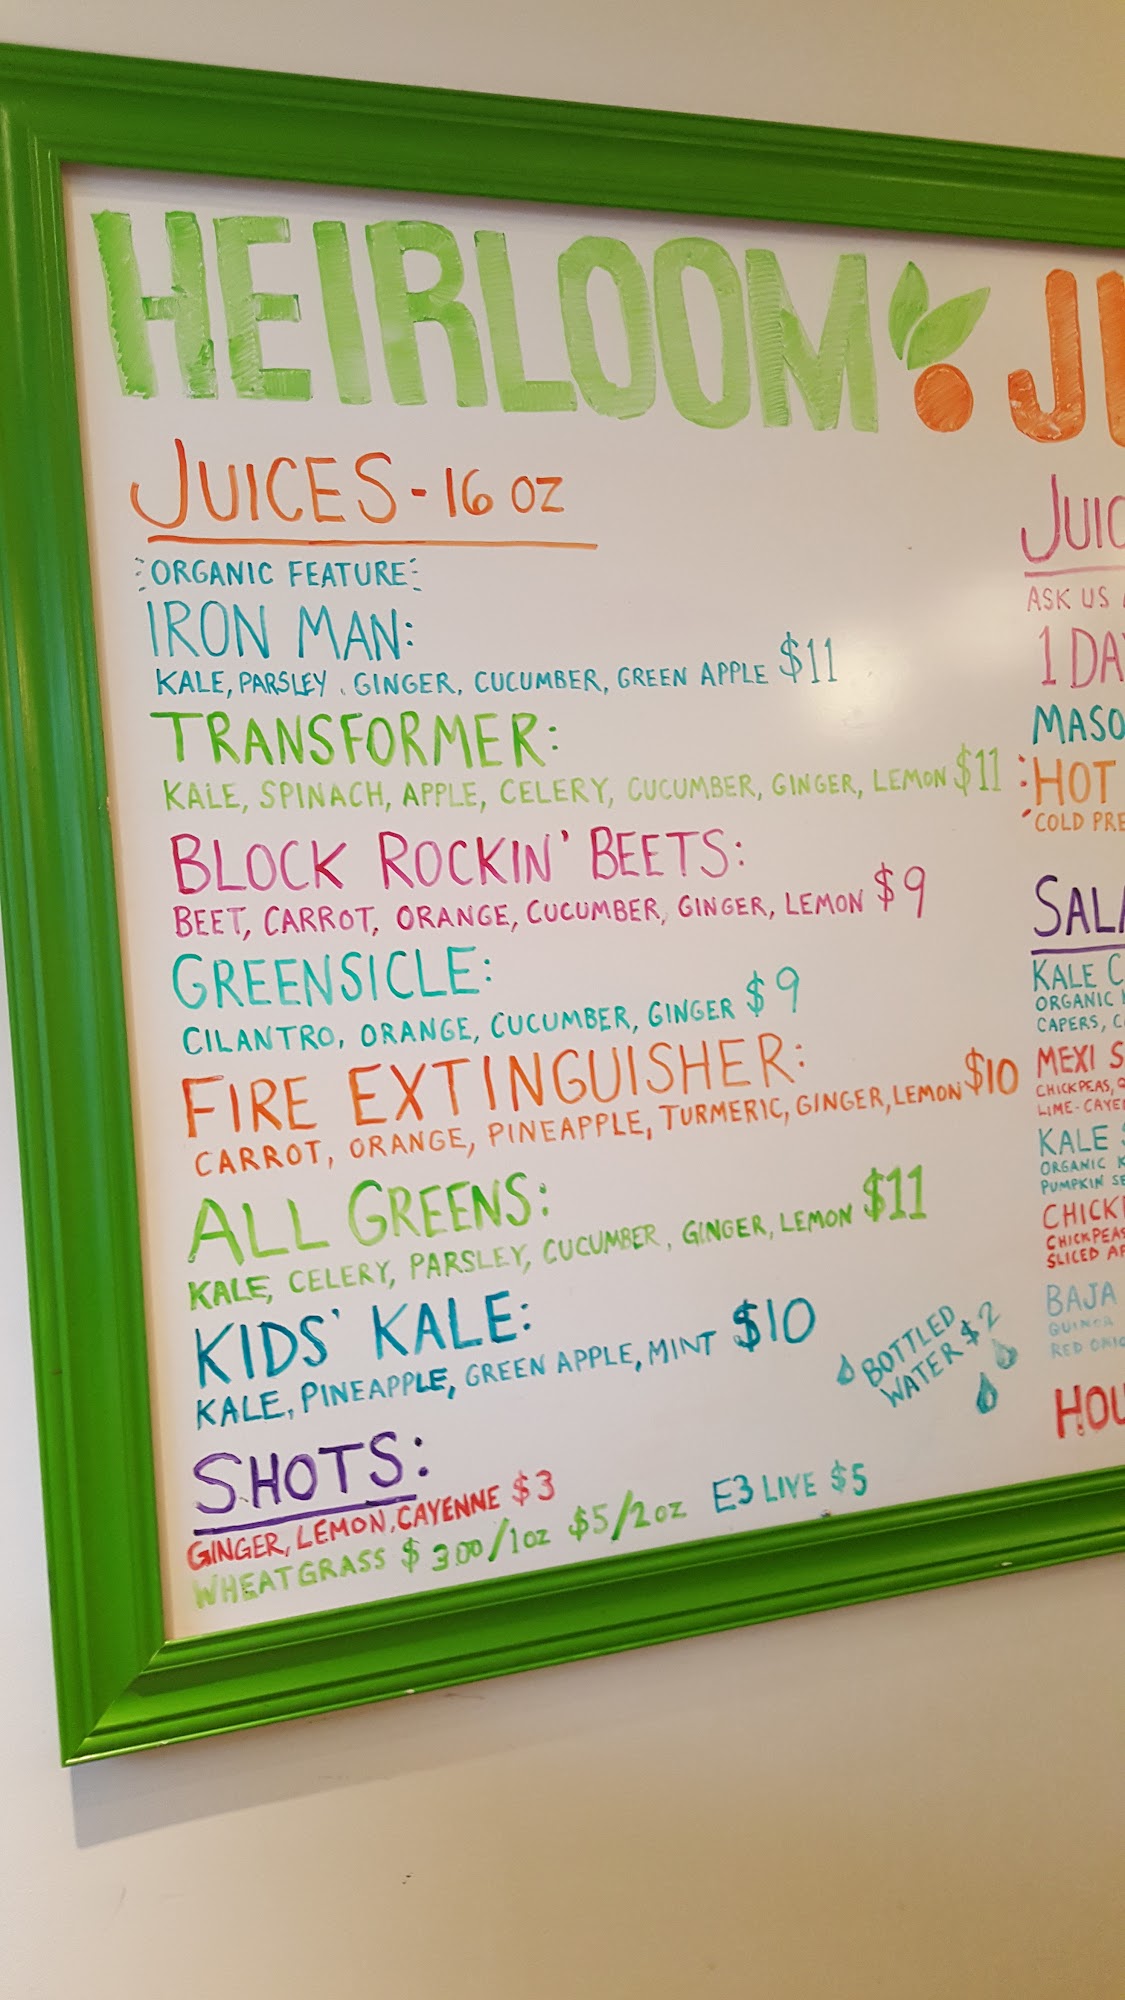 HEIRLOOM
JUICES - 16 OZ
ORGANIC FEATURE
IRON MAN:
KALE, PARSLEY, GINGER, CUCUMBER, GREEN APPLE $11
TRANSFORMER:
KALE, SPINACH, APPLE, CELERY, CUCUMBER, GINGER, LEMON $11
BLOCK ROCKIN' BEETS:
BEET, CARROT, ORANGE, CUCUMBER, GINGER, LEMON $9
GREENSICLE:
CILANTRO, ORANGE, CUCUMBER, GINGER $9
FIRE EXTINGUISHER:
CARROT, ORANGE, PINEAPPLE, TURMERIC, GINGER, LEMON $10
ALL GREENS:
KALE, CELERY, PARSLEY, CUCUMBER, GINGER, LEMON $11
KIDS' KALE:
KALE, PINEAPPLE, GREEN APPLE, MINT $10
BOTTLED
WATER $2
SHOTS:
GINGER, LEMON, CAYENNE $3
WHEATGRASS $3.00/1oz $5/2oz
E3 LIVE $5
ASK US
1 DA
MASO
HOT
COLD PRE
SALA
KALE C
ORGANIC
CAPERS, C
MEXI S
CHICKPEAS,
LIME-CAYE
KALE
ORGANIC K
PUMPKIN SE
CHICK
CHICKPEAS
SLICED
BAJA
QUINOA
RED ONIO
HOU